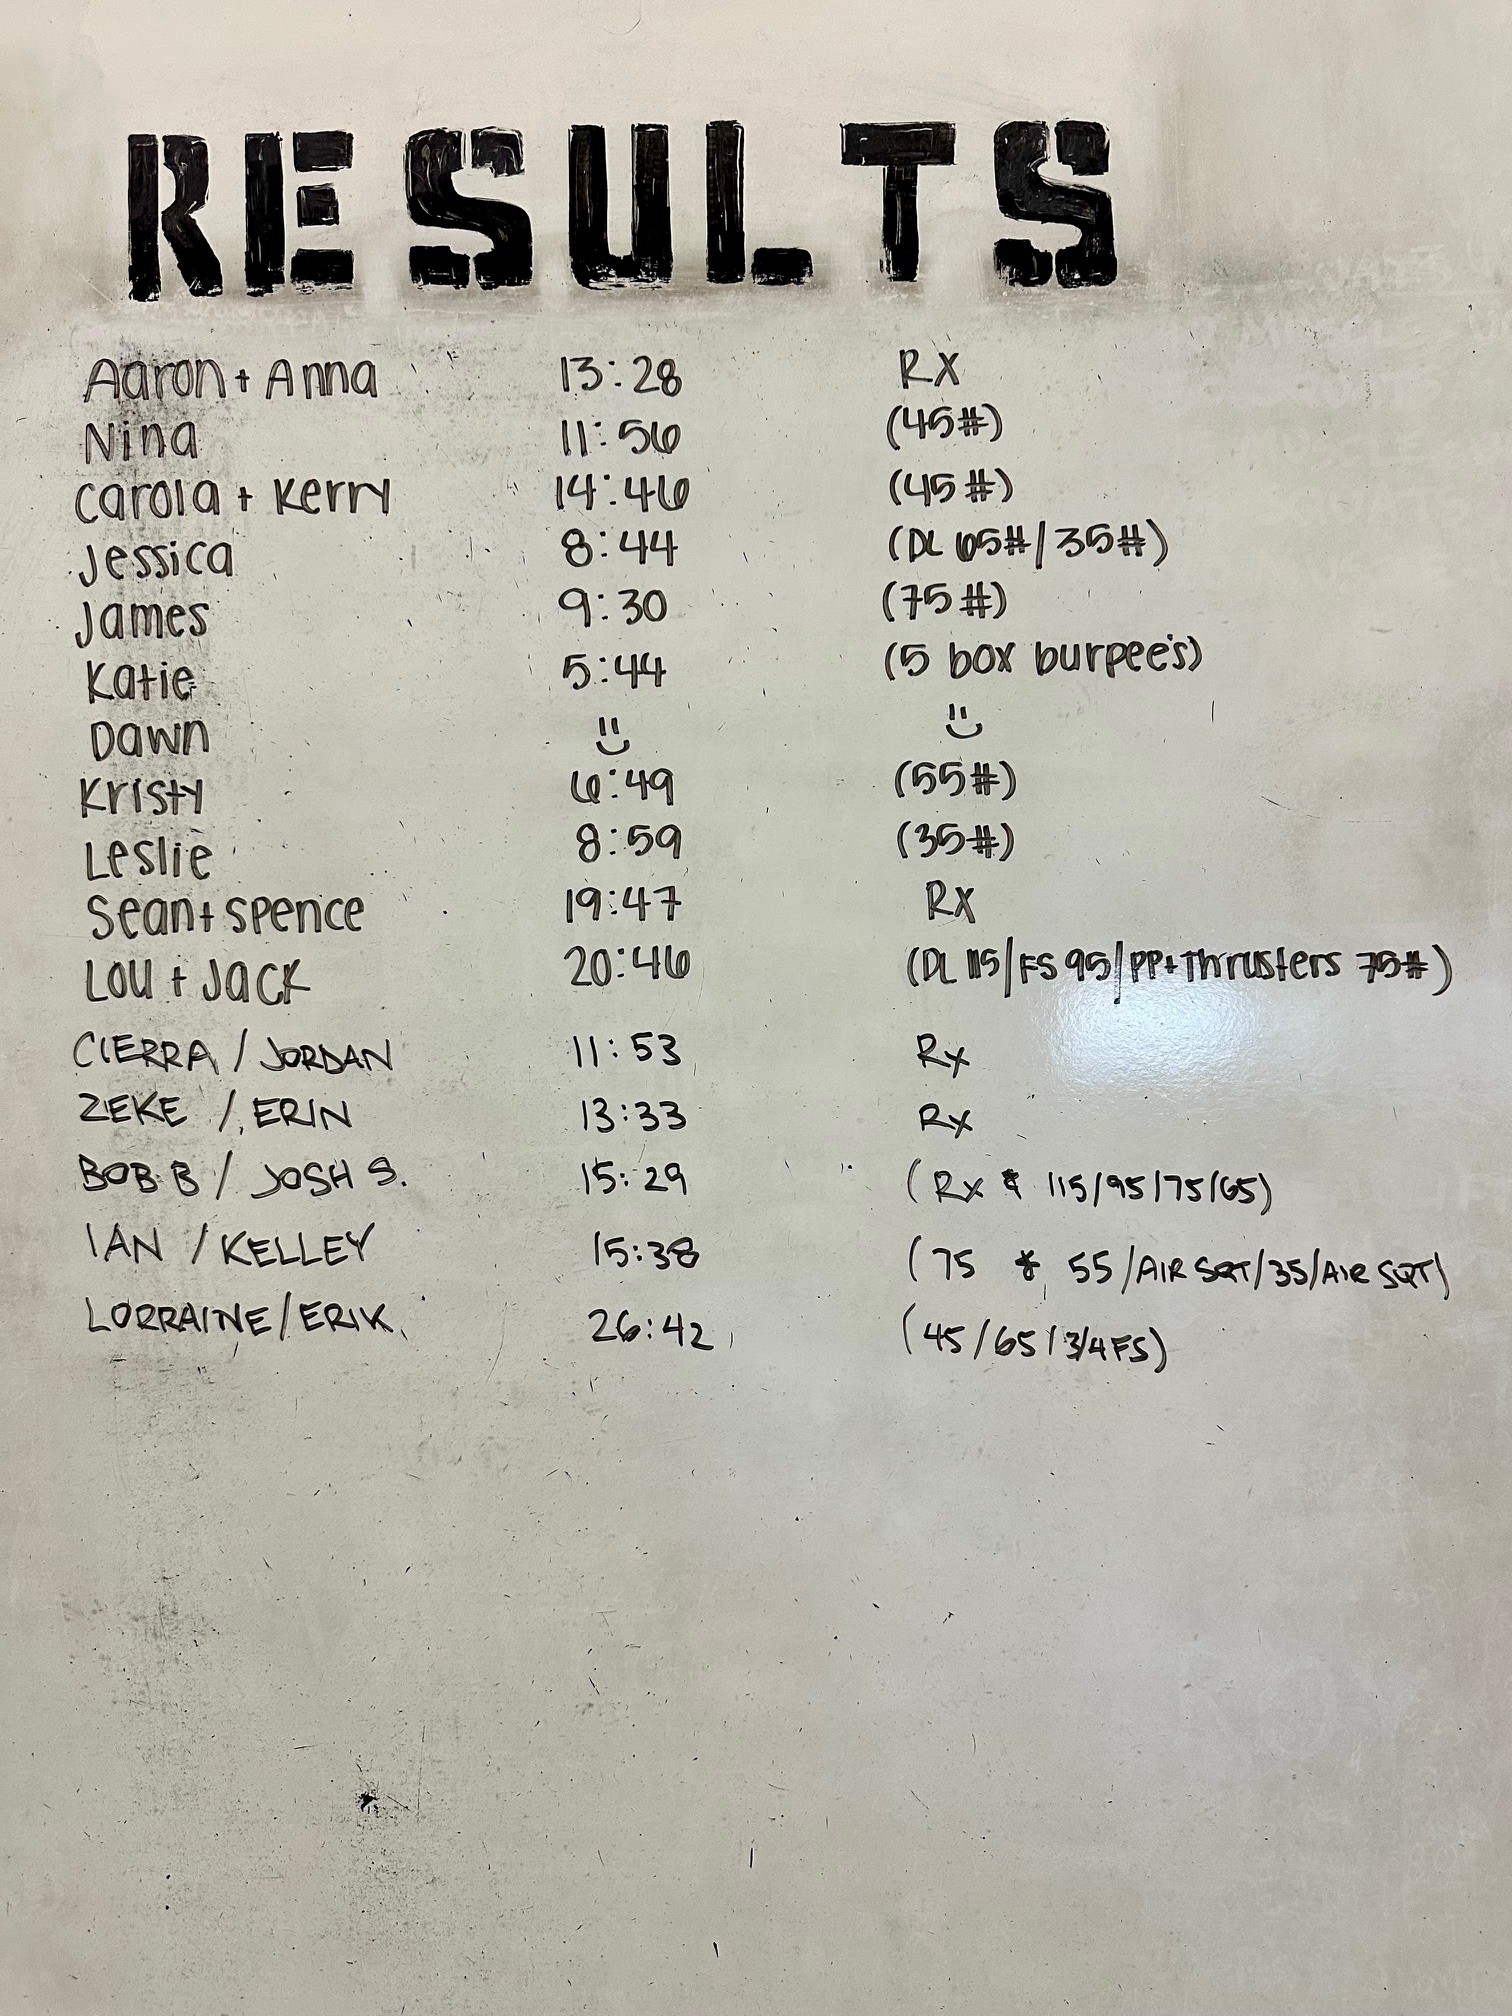 RESULTS
Aaron + Anna 13:28 Rx
Nina 11:56 (45#)
Carola + Kerry 14:46 (45#)
Jessica 8:44 (DL 65#/35#)
James 9:30 (75#)
Katie 5:44 (5 box burpee's)
Dawn
Kristy 6:49 (55#)
Leslie 8:59 (35#)
Sean + Spence 19:47 Rx
Lou + Jack 20:46 (DL 115/FS 95/PP+Thrusters 75#)
CIERRA / JORDAN 11:53 Rx
ZEKE / ERIN 13:33 Rx
BOB B / JOSH S. 15:29 (Rx & 115/95/75/65)
IAN / KELLEY 15:38 (75 & 55/AIR SQT/35/AIR SQT)
LORRAINE/ERIK 26:42 (45/65/3/4 FS)